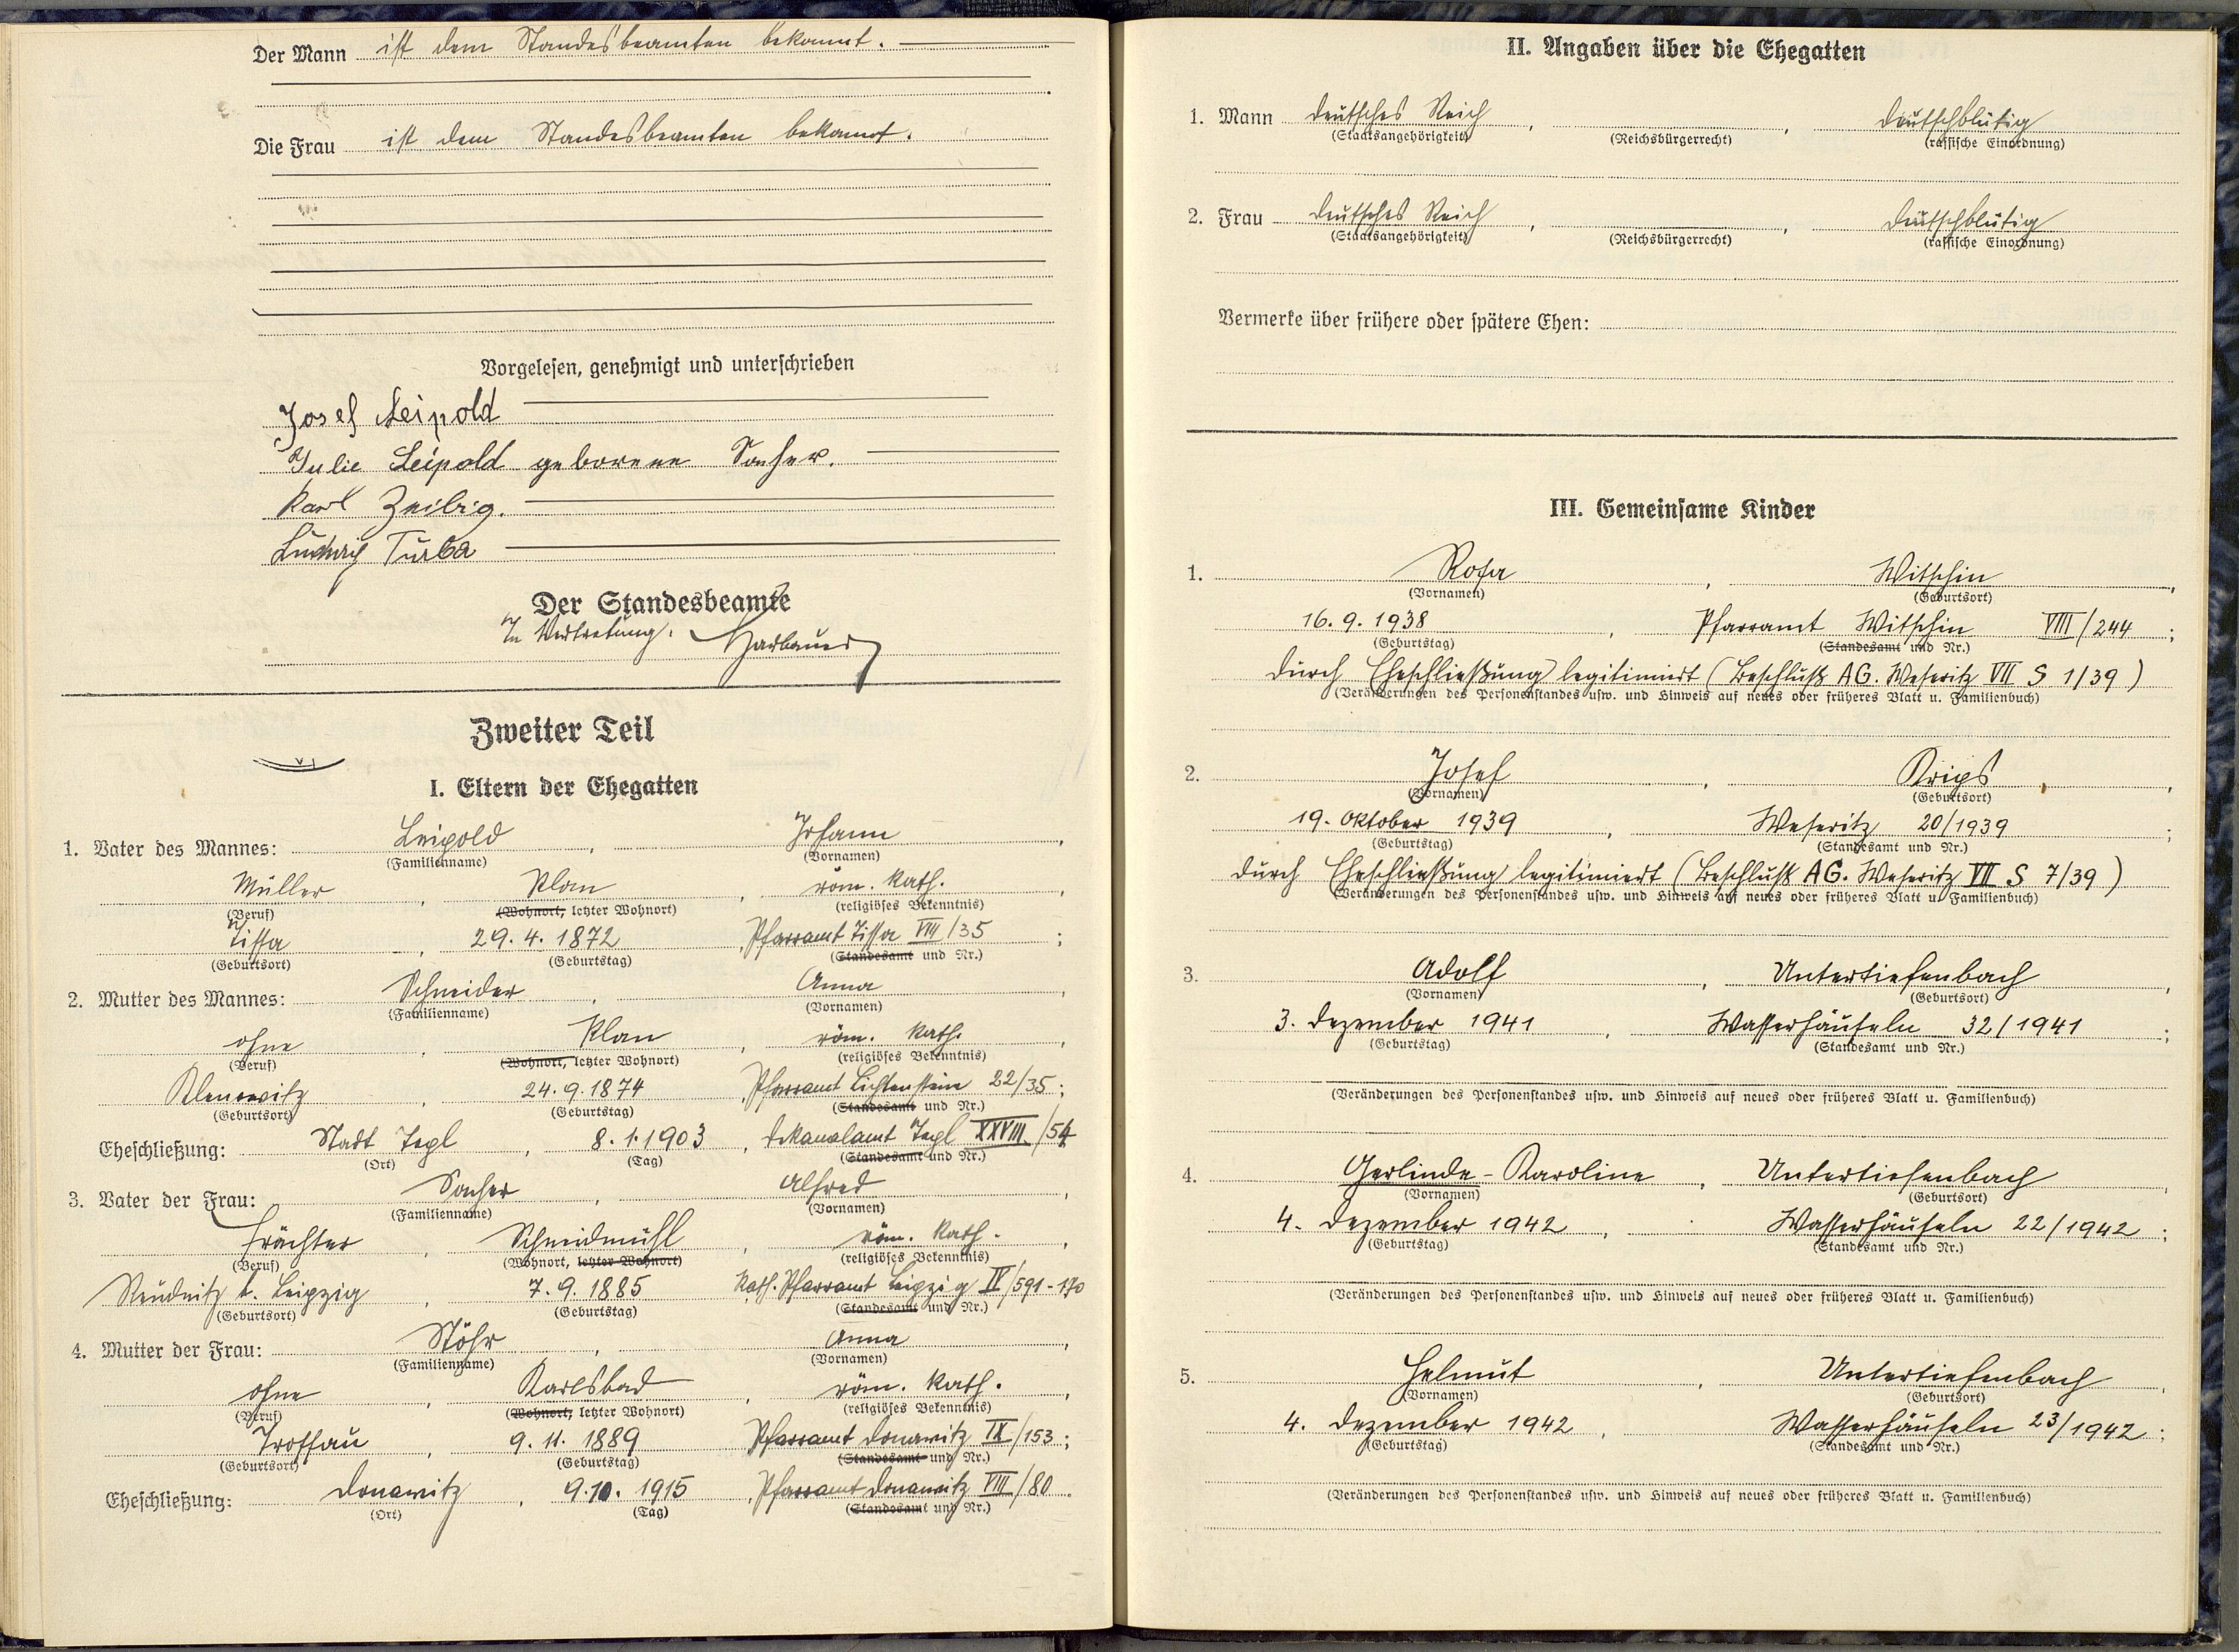 Der Mann ist dem Standesbeamten bekannt.
Die Frau ist dem Standesbeamten bekannt.
Vorgelesen, genehmigt und unterschrieben
Josef Leipold
Julie Leipold geborene Socher.
Karl Zeibig.
Ludwig Turba
Der Standesbeamte
In Vertretung. Harbauer
Zweiter Teil
I. Eltern der Ehegatten
1. Vater des Mannes: Leipold, Johann,
(Familienname) (Vornamen)
Müller, Plan, röm. kath.,
(Beruf) (Wohnort, letzter Wohnort) (religiöses Bekenntnis)
Tissa, 29.4.1872, Pfarramt Tissa VIII/35;
(Geburtsort) (Geburtstag) (Standesamt und Nr.)
2. Mutter des Mannes: Schneider, Anna,
(Familienname) (Vornamen)
ohne, Plan, röm. kath.,
(Beruf) (Wohnort, letzter Wohnort) (religiöses Bekenntnis)
24.9.1874, Pfarramt Lichtenstein 22/35;
(Geburtsort) (Geburtstag) (Standesamt und Nr.)
Eheschließung: Stadt Tepl, 8.1.1903, Dekanalamt Tepl XXVIII/54
(Ort) (Tag) (Standesamt und Nr.)
3. Vater der Frau: Socher, Alfred,
(Familienname) (Vornamen)
Frächter, Schneidmühl, röm. kath.,
(Beruf) (Wohnort, letzter Wohnort) (religiöses Bekenntnis)
Reudnitz b. Leipzig, 7.9.1885 Kath. Pfarramt Leipzig IV/591-170
(Geburtsort) (Geburtstag) (Standesamt und Nr.)
4. Mutter der Frau: Stöhr, Anna,
(Familienname) (Vornamen)
ohne, Karlsbad, röm. kath.,
(Beruf) (Wohnort, letzter Wohnort) (religiöses Bekenntnis)
Trossau, 9.11.1889 Pfarramt Donawitz IX/153;
(Geburtsort) (Geburtstag) (Standesamt und Nr.)
Eheschließung: Donawitz, 9.10.1915, Pfarramt Donawitz VIII/80.
(Ort) (Tag) (Standesamt und Nr.)
II. Angaben über die Ehegatten
1. Mann Deutsches Reich, , deutschblütig
(Staatsangehörigkeit) (Reichsbürgerrecht) (rassische Einordnung)
2. Frau Deutsches Reich, , deutschblütig
(Staatsangehörigkeit) (Reichsbürgerrecht) (rassische Einordnung)
Vermerke über frühere oder spätere Ehen:
III. Gemeinsame Kinder
1. Rosa, Witschin,
(Vornamen) (Geburtsort)
16.9.1938, Pfarramt Witschin VIII/244;
(Geburtstag) (Standesamt und Nr.)
durch Eheschließung legitimiert (Beschluß AG. Weseritz VII S 1/39)
(Veränderungen des Personenstandes usw. und Hinweis auf neues oder früheres Blatt u. Familienbuch)
2. Josef, Krips,
(Vornamen) (Geburtsort)
19. Oktober 1939, Weseritz 20/1939;
(Geburtstag) (Standesamt und Nr.)
durch Eheschließung legitimiert (Beschluß AG. Weseritz VII S 7/39)
(Veränderungen des Personenstandes usw. und Hinweis auf neues oder früheres Blatt u. Familienbuch)
3. Adolf, Untertiefenbach,
(Vornamen) (Geburtsort)
3. Dezember 1941, Wasserhäuseln 32/1941;
(Geburtstag) (Standesamt und Nr.)
(Veränderungen des Personenstandes usw. und Hinweis auf neues oder früheres Blatt u. Familienbuch)
4. Gerlinde-Karoline, Untertiefenbach,
(Vornamen) (Geburtsort)
4. Dezember 1942, Wasserhäuseln 22/1942;
(Geburtstag) (Standesamt und Nr.)
(Veränderungen des Personenstandes usw. und Hinweis auf neues oder früheres Blatt u. Familienbuch)
5. Helmut, Untertiefenbach,
(Vornamen) (Geburtsort)
4. Dezember 1942, Wasserhäuseln 23/1942;
(Geburtstag) (Standesamt und Nr.)
(Veränderungen des Personenstandes usw. und Hinweis auf neues oder früheres Blatt u. Familienbuch)